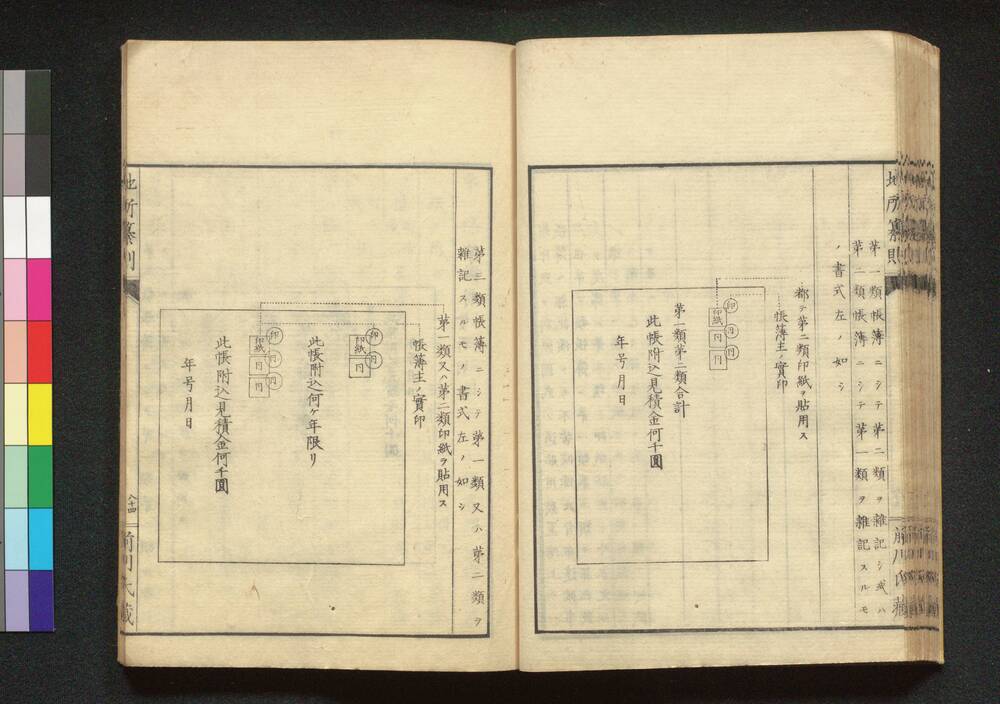 地所纂則
第一類帳簿ニシテ第二類ヲ雜記シ或ハ
第二類帳簿ニシテ第一類ヲ雜記スルモ
ノ書式左ノ如シ
都テ第二類印紙ヲ貼用ス
帳簿主ノ實印
印
円
円
印紙
円
円
第一類第二類合計
此帳附込見積金何千圓
年号月日
前川氏藏
第三類帳簿ニシテ第一類又ハ第二類ヲ
雜記スルモノ書式左ノ如シ
第一類又ハ第二類印紙ヲ貼用ス
帳簿主ノ實印
印
円
印紙
円
此帳附込何ケ年限リ
印
円
円
印紙
円
円
此帳附込見積金何千圓
年号月日
地所纂則
八十四
前川氏藏